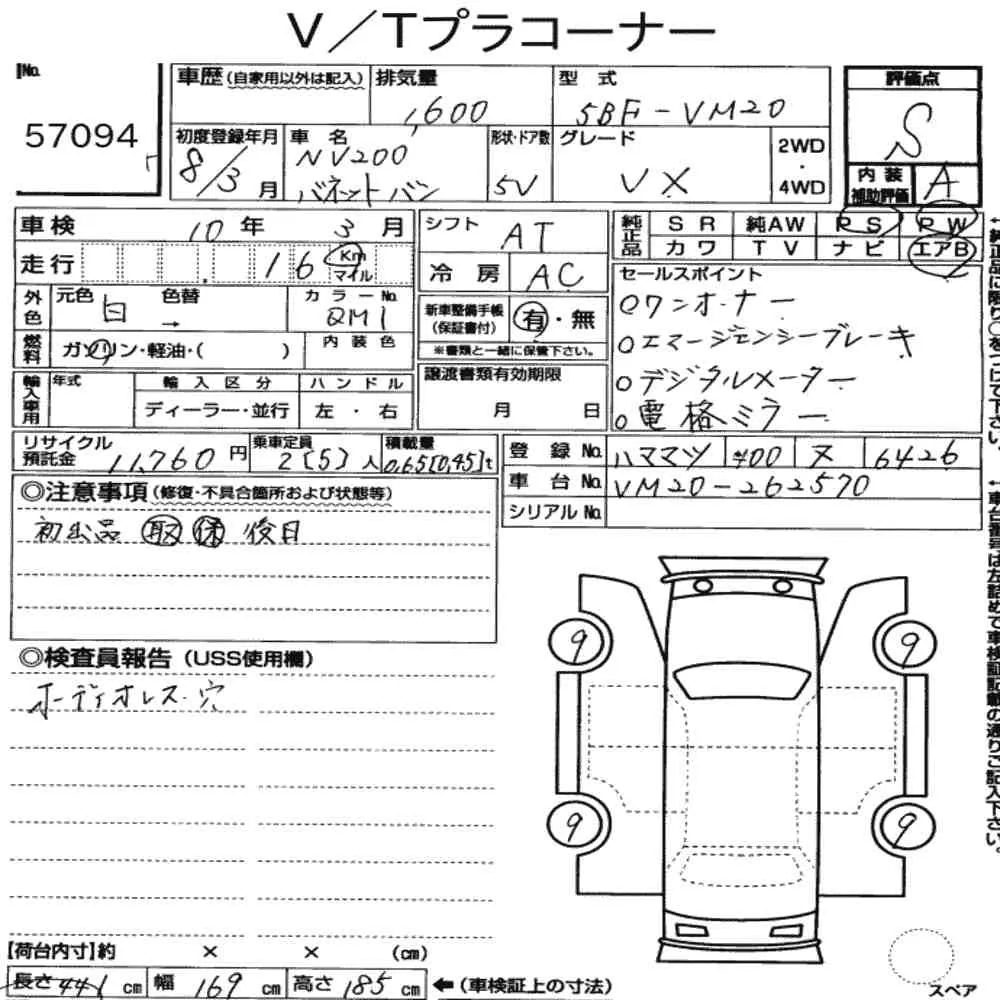 V／Tプラコーナー
No.
57094
車歴(自家用以外は記入)
排気量
1,600
型式
5BF-VM20
評価点
S
初度登録年月
8/3月
車名
NV200
バネットバン
形状・ドア数
5V
グレード
VX
2WD
・
4WD
内装
補助評価
A
車検 10年 3月
シフト AT
純正品
SR 純AW PS PW
カワ TV ナビ エアB
走行 16 Km マイル
冷房 AC
セールスポイント
○ワンオーナー
○エマージェンシーブレーキ
○デジタルメーター
○電格ミラー
外色
元色 白 → 色替
カラーNo.
QM1
新車整備手帳
(保証書付)
有・無
※書類と一緒に保管下さい。
燃料
ガソリン・軽油・( )
内装色
輸入車用
年式
輸入区分
ハンドル
ディーラー・並行
左・右
譲渡書類有効期限
月 日
リサイクル
預託金
11,760円
乗車定員
2[5]人
積載量
0.65[0.45]t
登録No. ハママツ 400 ヌ 6426
車台No. VM20-262570
シリアルNo.
◎注意事項(修復・不具合箇所および状態等)
初出品 取 保 後日
◎検査員報告(USS使用欄)
オーディオレス・穴
9
9
9
9
【荷台内寸】約 × × (cm)
長さ 441 cm 幅 169 cm 高さ 185 cm ←(車検証上の寸法)
スペア
↑純正品に限り○をつけて下さい。
↑車台番号は左詰めで車検証記載の通りご記入下さい。